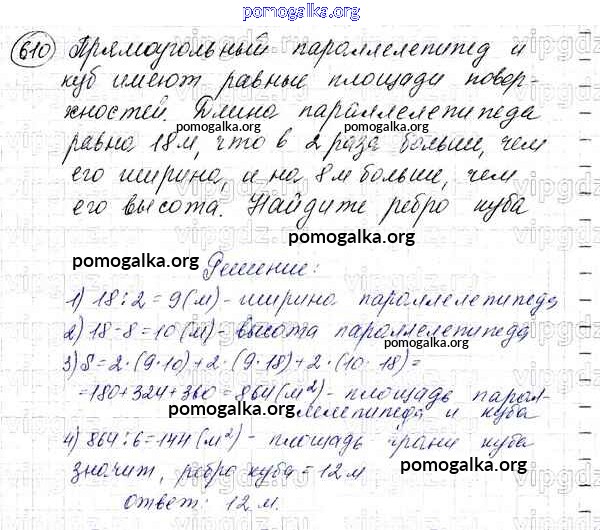 pomogalka.org
610 Прямоугольный параллелепипед и
куб имеют равные площади повер-
хностей. Длина параллелепипеда
pomogalka.org
равна 18 м, что в 2 раза больше, чем
его ширина, и на 8 м больше, чем
его высота. Найдите ребро куба
pomogalka.org
pomogalka.org
Решение:
1) 18:2=9(м)- ширина параллелепипеда
pomogalka.org
2) 18-8=10(м)- высота параллелепипеда
3) S=2·(9·10)+2·(9·18)+2·(10·18)=
=180+324+360=864(м²)- площадь парал-
pomogalka.org
лелепипеда и куба
4) 864:6=144(м²)- площадь грани куба
значит, ребро куба=12м
pomogalka.org
ответ: 12 м.
pomogalka.org